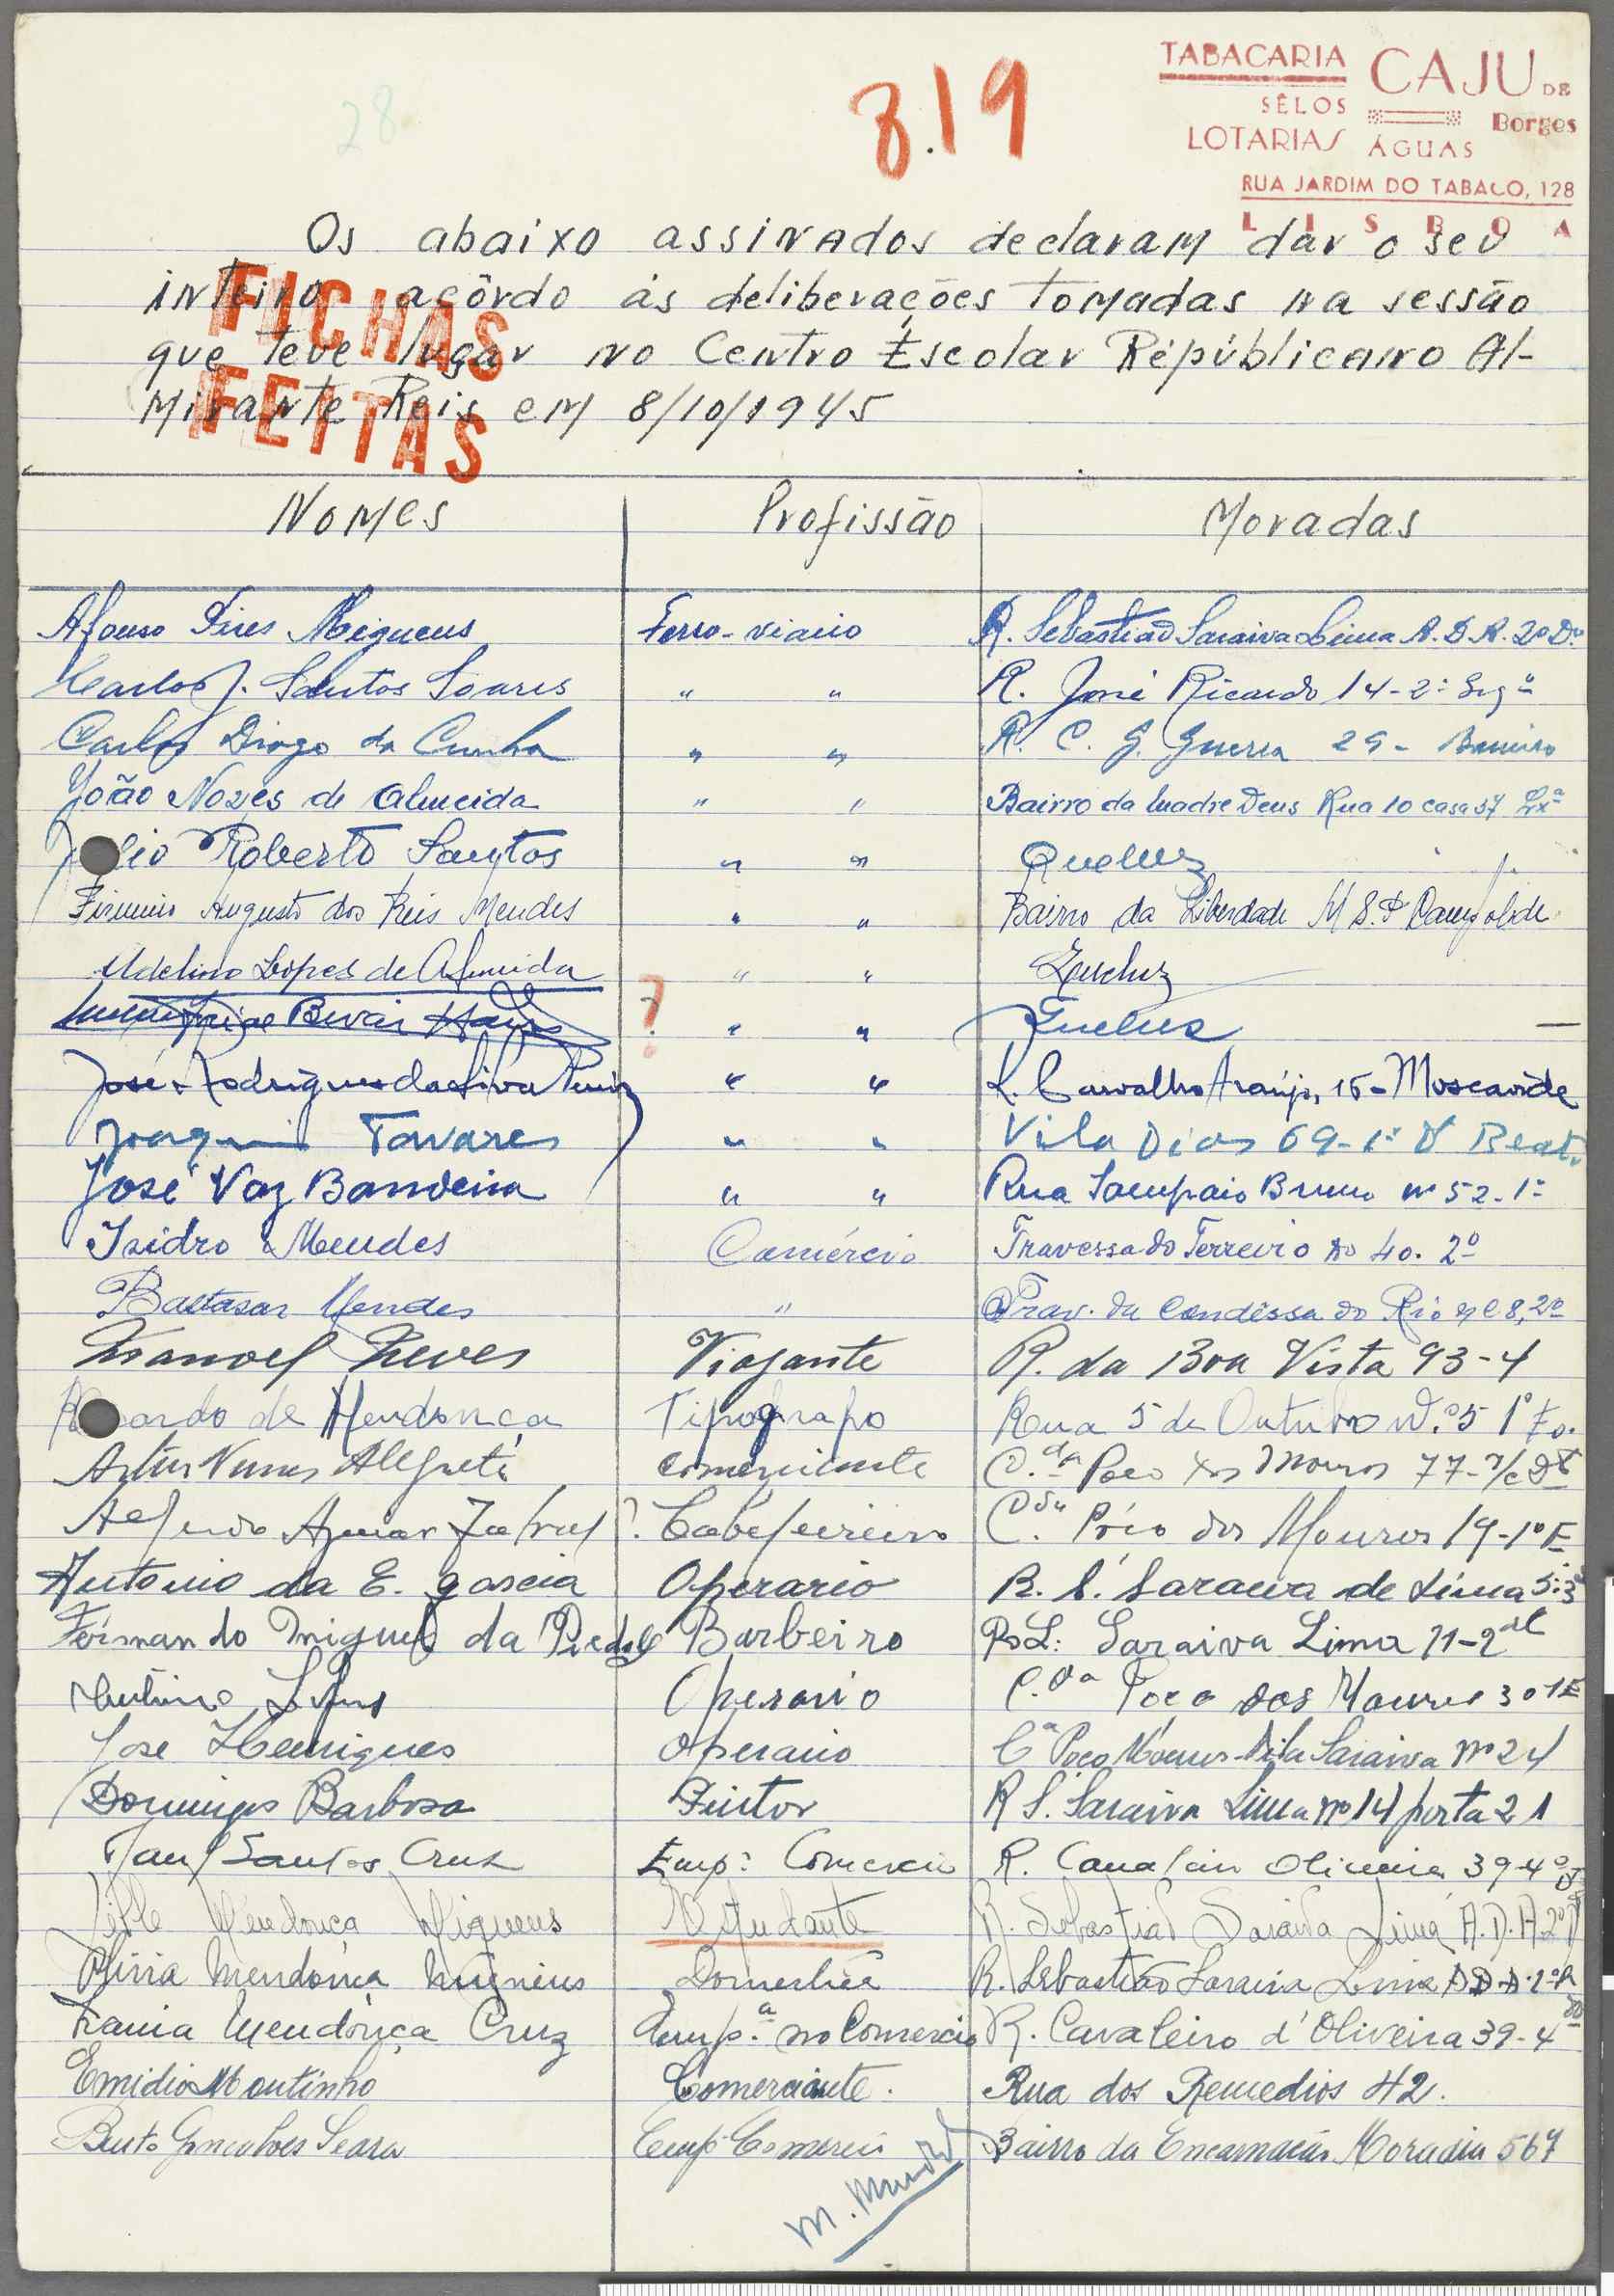 28
819
TABACARIA CAJU DE
SÊLOS Borges
LOTARIAS ÁGUAS
RUA JARDIM DO TABACO, 128
LISBOA
Os abaixo assinados declaram dar o seu
inteiro acôrdo ás deliberações tomadas na sessão
que teve lugar no Centro Escolar Républicano Al-
mirante Reis em 8/10/1945
FICHAS
FEITAS
Nomes Profissão Moradas
Afonso Pires Migueus Ferro-viario R. Sebastião Saraiva Lima A.D.A. 2º Dº
Carlos J. Santos Soares " " R. José Ricardo 14-2º Esqº
Carlos Diogo da Cunha " " R. C. G. Guerra 29-
João Nozes de Almeida " " Bairro da Madre Deus Rua 10 casa 37 Lxª
Roberto Santos " " Queluz
Firmino Augusto dos Reis Mendes " " Bairro da Liberdade M S.P Campolide
Adelino Lopes de Almeida " " Queluz
? " " Queluz
José Rodrigues da Silva " " R. Carvalho Araújo, 15-Moscavide
Joaquim Tavares " " Vila Dias 69-1º D Beato
José Vaz Bandeira " " Rua Sampaio Bruno nº 52-1º
Isidro Mendes Comércio Travessa do Terreiro do 40. 2º
Baltasar Mendes " Trav. da Condêssa do Rio nº 8, 2º
Manoel Neves Viajante R. da Boa Vista 93-4
de Mendonça Tipografo Rua 5 de Outubro N.º 5 1º Eº.
Artur Nunes Alegrete comerciante C.da Poço dos Mouros 77-r/c Dt
Alfredo Aguiar ? Cabeleireiro C.da Poço dos Mouros 19-1º E
Antonio da E. garcia Operario R. S. Saraiva de Lima 5-3º
Fernando Miguel da Piedade Barbeiro R. S. Saraiva Lima 11-2
Operario C.da Poço dos Mouros 30 1E
José Henriques Operario Cª Poço Mouros-Vila Saraiva nº 24
Domingos Barbosa Pintor R S. Saraiva Lima nº 14 porta 21
Raul Santos Cruz Empº Comercio R. Cavaleiro Oliveira 39-4º
Mendonça Migueus Estudante R. Sebastião Saraiva Lima A.D.A 2º D
Olivia Mendonça Migueus Domestica R. Sebastião Saraiva Lima A D A 2º
Mendonça Cruz Emp.ª no Comercio R. Cavaleiro d'Oliveira 39-4
Emidio Moutinho Comerciante. Rua dos Remedios 42.
Bento Gonçalves Seara Emp Comercio Bairro da Encarnação Moradia 567